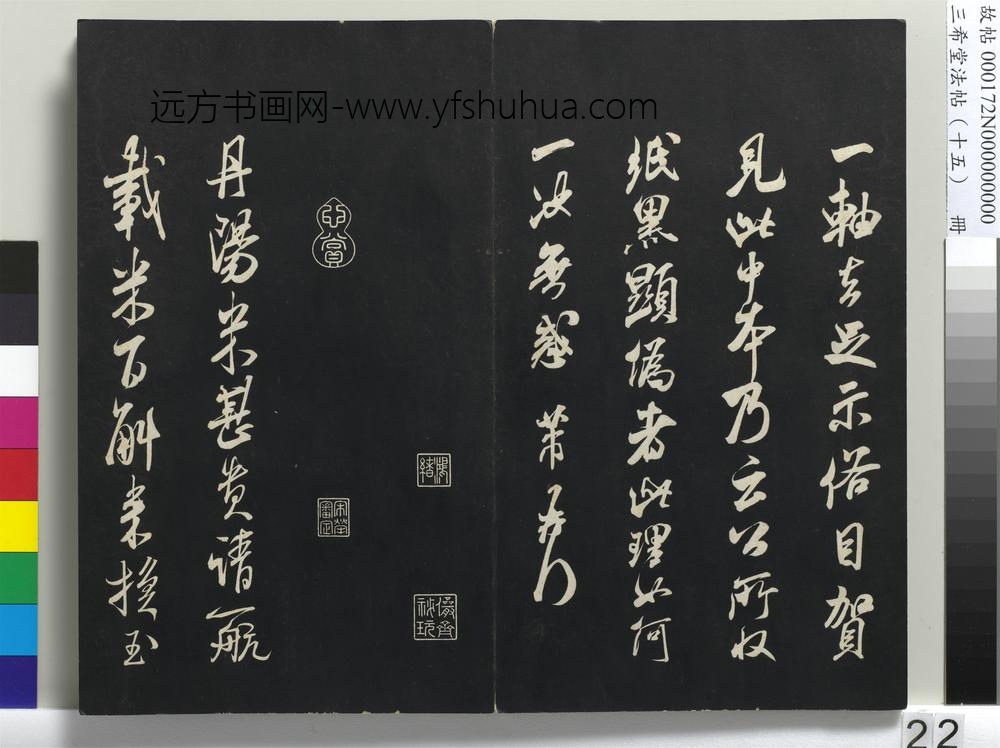 一軸去足示俗目賀
見此中本乃云公所收
紙黑顯偽者此理如何
一決無惑 芾頓首
丹陽米甚貴請一航
載米百斛來換玉
遠方书画网-www.yfshuhua.com
故帖 000172N000000000
三希堂法帖（十五） 冊
22